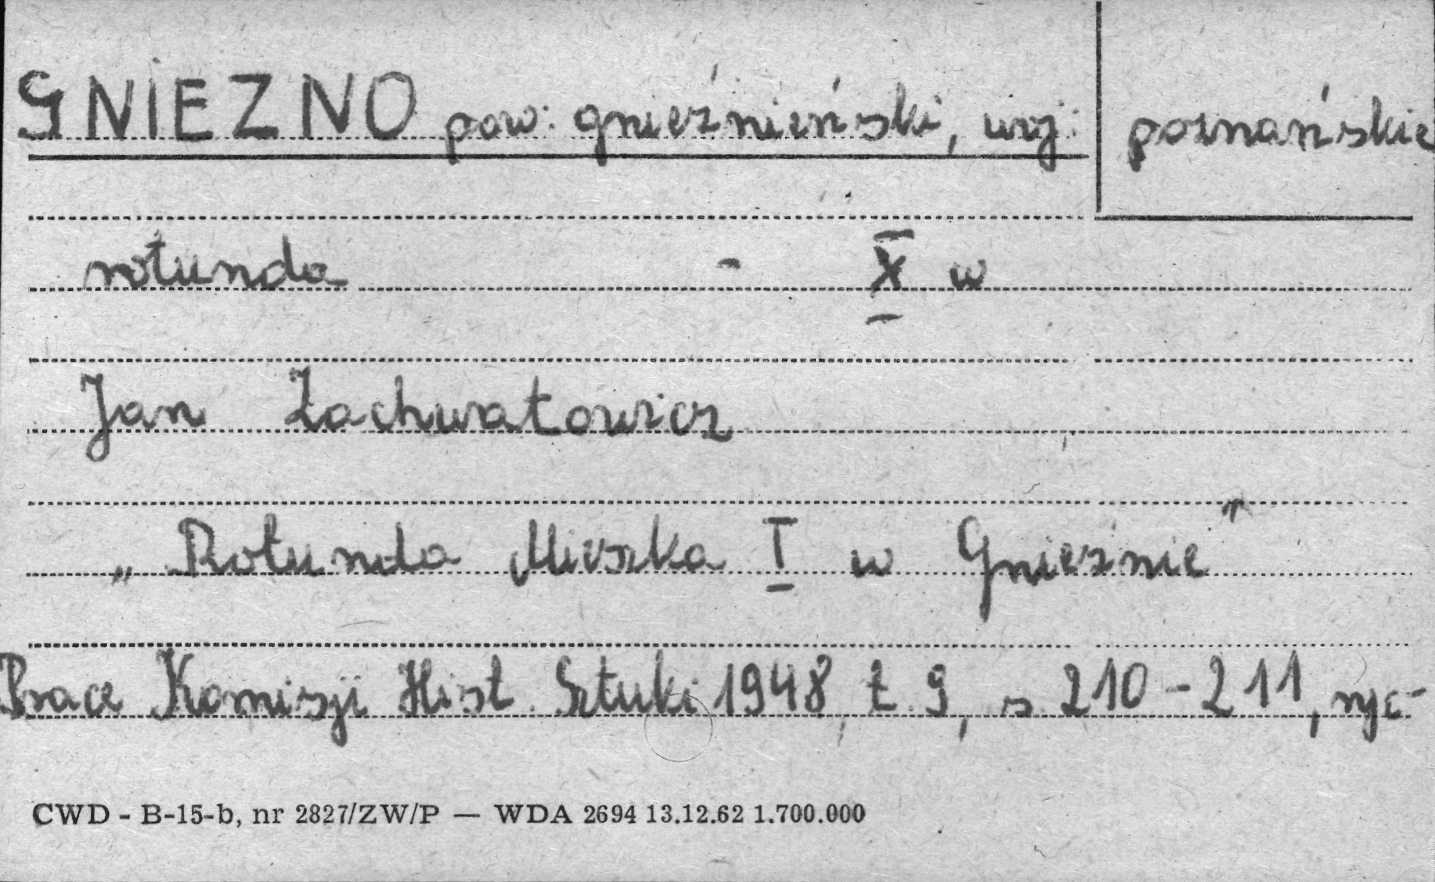 GNIEZNO pow. gnieźnieński, woj. poznańskie
rotunda - X w
Jan Zachwatowicz
„Rotunda Mieszka I w Gnieźnie"
Prace Komisji Hist. Sztuki 1948, t. 9, s. 210-211, ryc-
CWD - B-15-b, nr 2827/ZW/P — WDA 2694 13.12.62 1.700.000